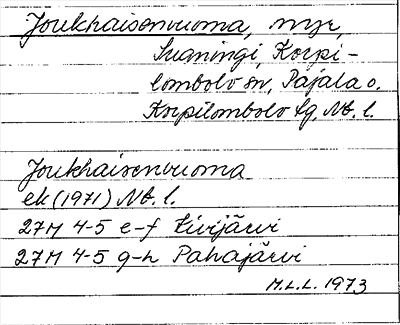 Joukhaisenvuoma, myr,
Suaningi, Korpi-
lombolo sn, Pajala o.
Korpilombolo tg, Nb. l.
Joukhaisenvuoma
ek (1971) Nb. l.
27M 4-5 e-f Kivijärvi
27M 4-5 g-h Pahajärvi
M.L.L. 1973